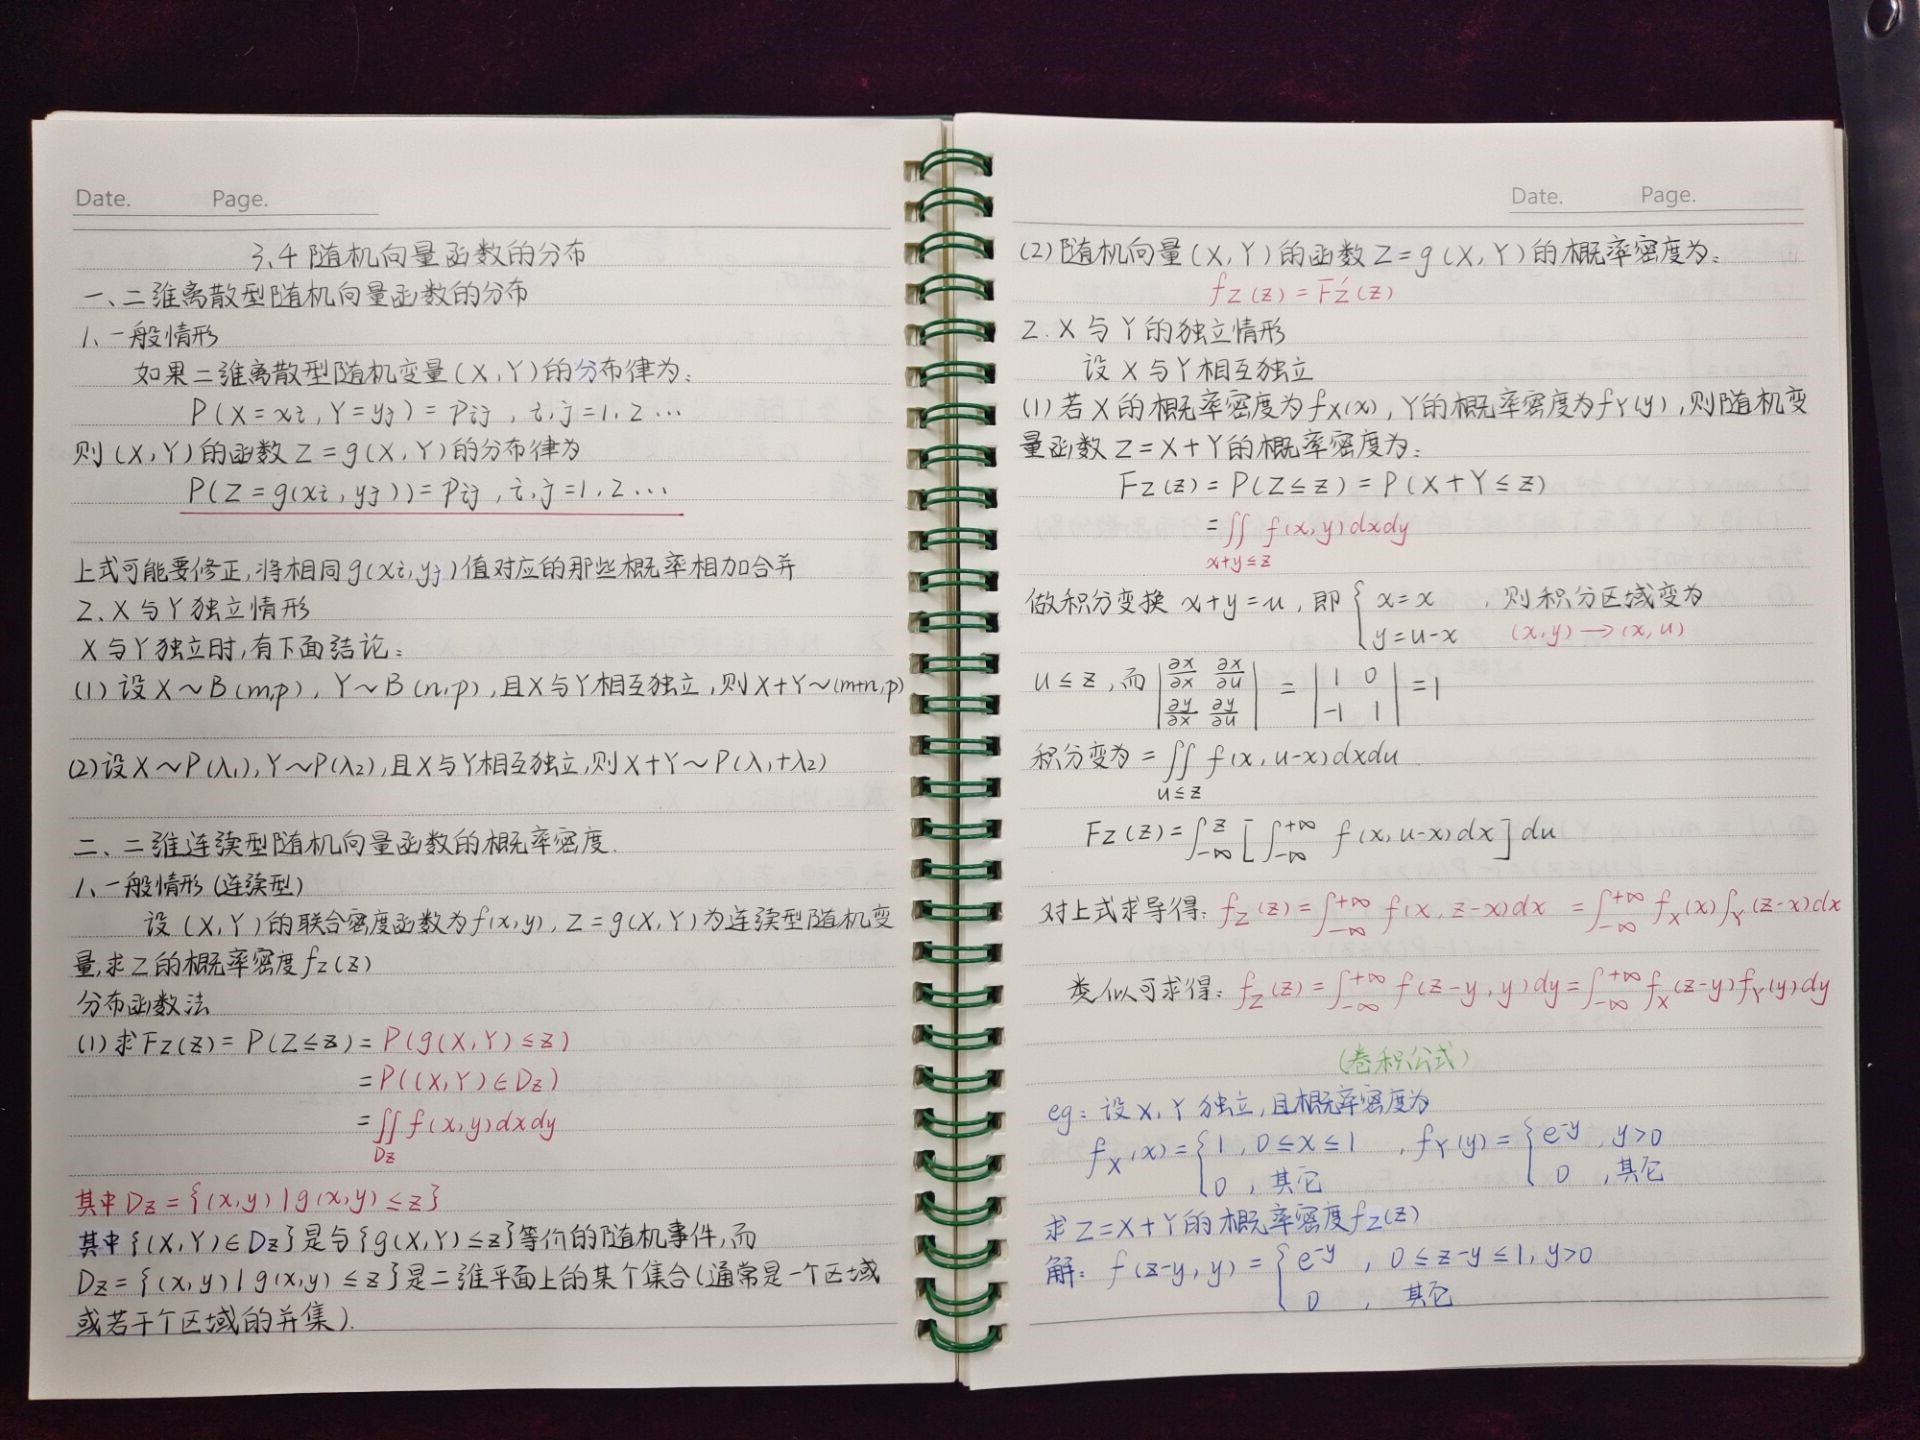 Date. Page.
3.4 随机向量函数的分布
一、二维离散型随机向量函数的分布
1、一般情形
如果二维离散型随机变量(X,Y)的分布律为:
P(X=xi,Y=yj)=Pij,i,j=1,2…
则(X,Y)的函数Z=g(X,Y)的分布律为
P(Z=g(xi,yj))=Pij,i,j=1,2…
上式可能要修正,将相同g(xi,yj)值对应的那些概率相加合并
2.X与Y独立情形
X与Y独立时,有下面结论:
(1)设X~B(m,p),Y~B(n,p),且X与Y相互独立,则X+Y~(m+n,p)
(2)设X~P(λ₁),Y~P(λ₂),且X与Y相互独立,则X+Y~P(λ₁+λ₂)
二、二维连续型随机向量函数的概率密度.
1、一般情形(连续型)
设(X,Y)的联合密度函数为f(x,y),Z=g(X,Y)为连续型随机变
量,求Z的概率密度fZ(z)
分布函数法
(1)求FZ(z)=P(Z≤z)=P(g(X,Y)≤z)
=P((X,Y)∈Dz)
=∬f(x,y)dxdy
Dz
其中Dz={(x,y)|g(x,y)≤z}
其中{(X,Y)∈Dz}是与{g(X,Y)≤z}等价的随机事件,而
Dz={(x,y)|g(x,y)≤z}是二维平面上的某个集合(通常是一个区域
或若干个区域的并集).
Date. Page.
(2)随机向量(X,Y)的函数Z=g(X,Y)的概率密度为:
fZ(z)=FZ′(z)
2.X与Y的独立情形
设X与Y相互独立
(1)若X的概率密度为fX(x),Y的概率密度为fY(y),则随机变
量函数Z=X+Y的概率密度为:
FZ(z)=P(Z≤z)=P(X+Y≤z)
=∬f(x,y)dxdy
x+y≤z
做积分变换x+y=u,即{x=x,则积分区域变为
y=u-x (x,y)→(x,u)
u≤z,而|∂x/∂x ∂x/∂u| = |1 0| =1
|∂y/∂x ∂y/∂u| |-1 1|
积分变为=∬f(x,u-x)dxdu
u≤z
FZ(z)=∫_{-∞}^{z}[∫_{-∞}^{+∞} f(x,u-x)dx]du
对上式求导得:fZ(z)=∫_{-∞}^{+∞} f(x,z-x)dx =∫_{-∞}^{+∞} fX(x)fY(z-x)dx
类似可求得:fZ(z)=∫_{-∞}^{+∞} f(z-y,y)dy=∫_{-∞}^{+∞} fX(z-y)fY(y)dy
(卷积公式)
eg:设X,Y独立,且概率密度为
fX(x)={1,0≤x≤1 ,fY(y)={e^{-y},y>0
0,其它 0,其它
求Z=X+Y的概率密度fZ(z)
解:f(z-y,y)={e^{-y},0≤z-y≤1,y>0
0,其它